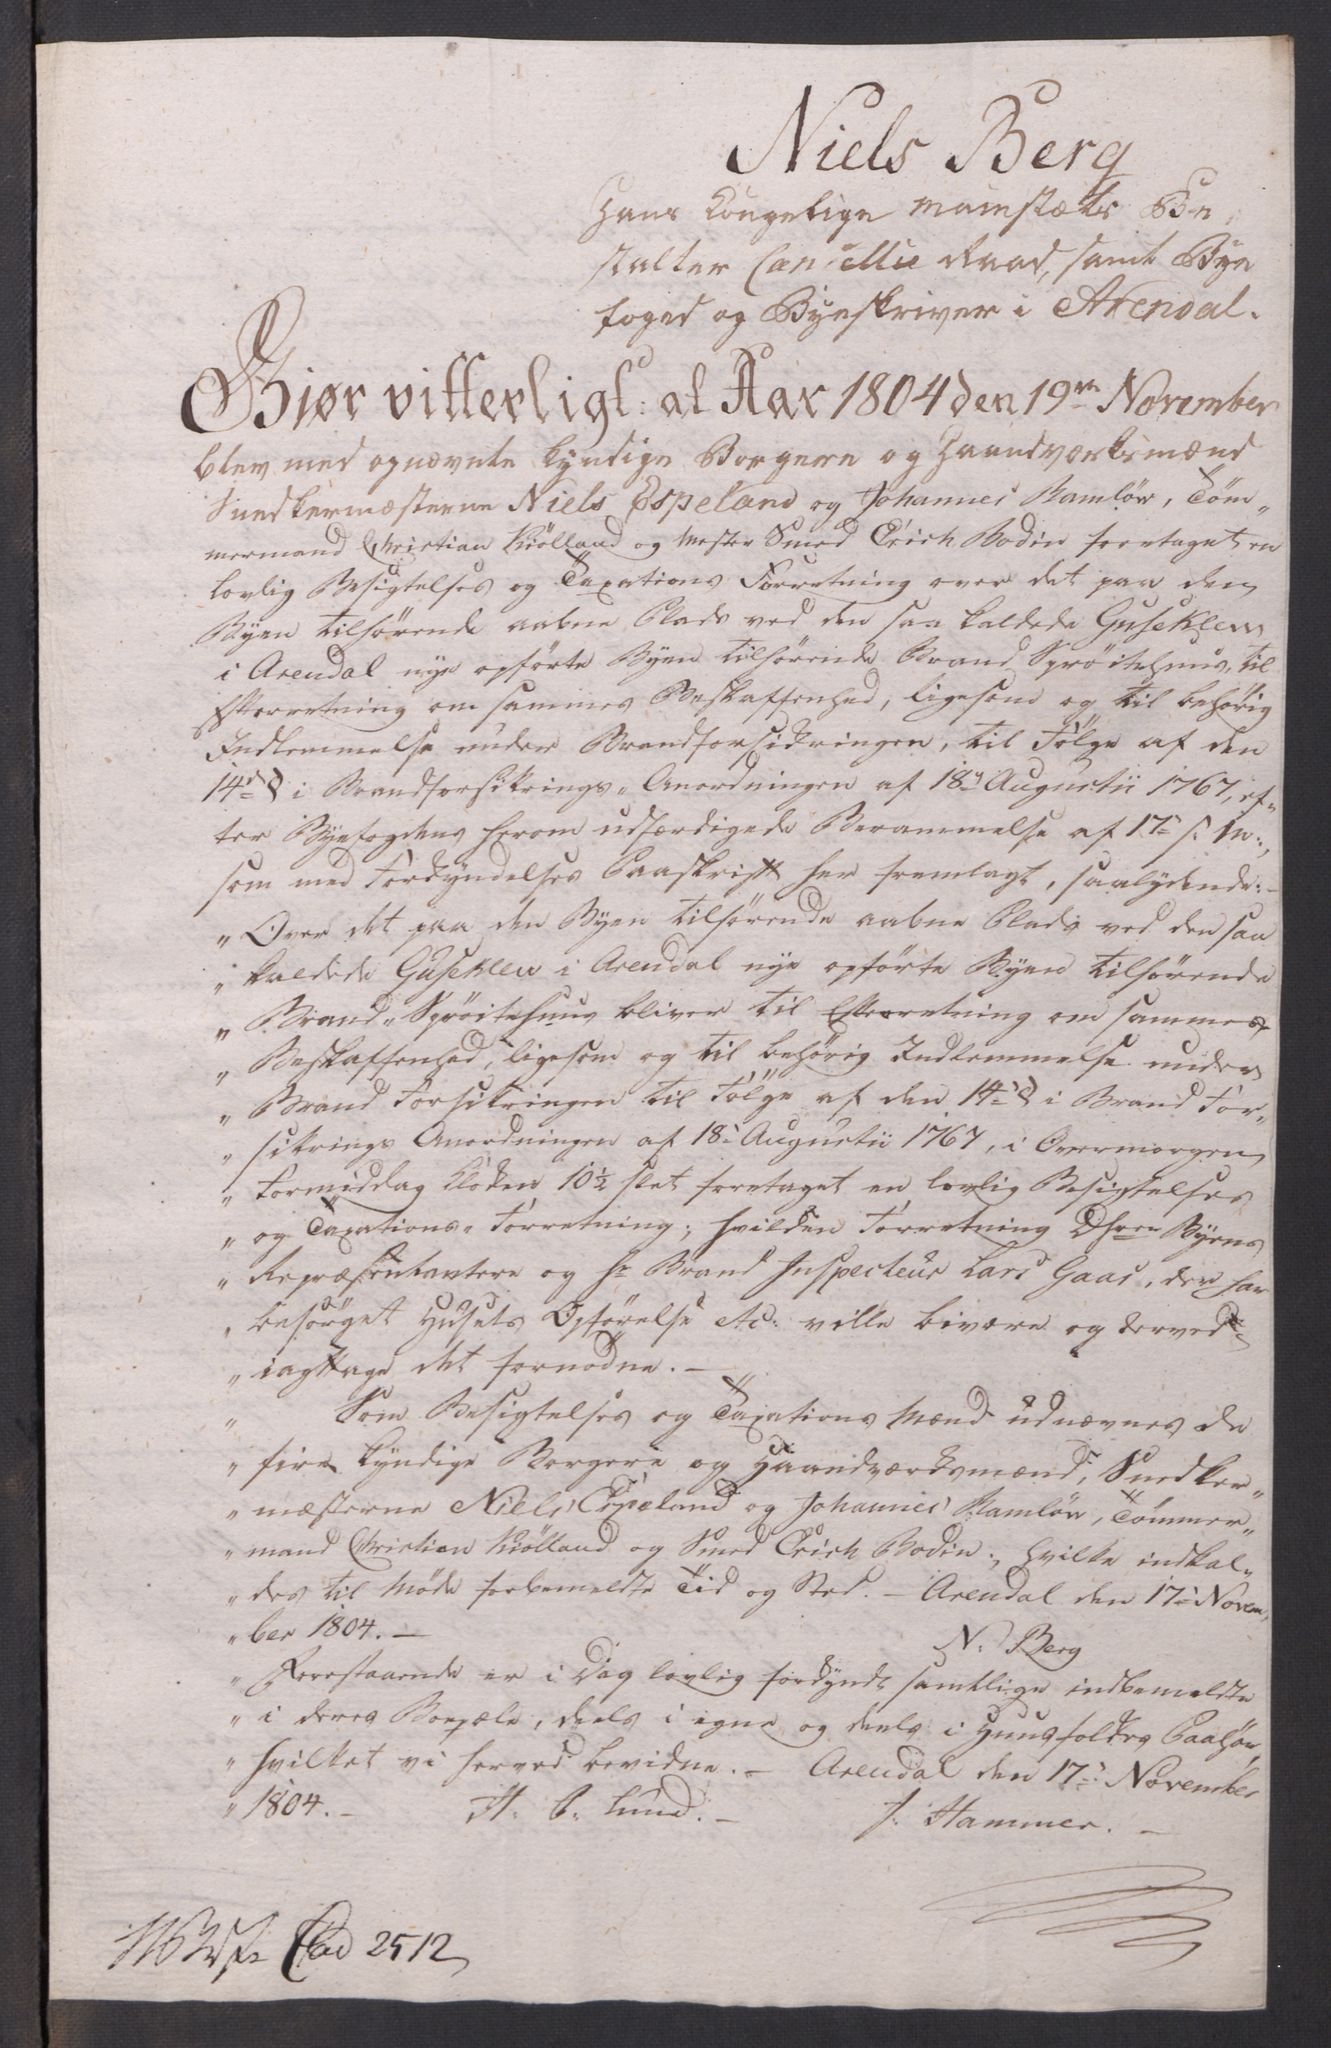 Niels Berg
Hans Kongelige Maiestæts Be,
stalter Cancellie Raad, samt Bye
foged og Byeskriver i Arendal.
Giør vitterligt: at Aar 1804 den 19de November
blev med opnævnte kyndige Borgere og Haandværksmænd
Snedkermæsterne Niels Espeland og Johannes Ramløw, Tøm„
mermand Christian Kiölland og Mester Smed Erich Bodin foretaget en
lovlig Besigtelses og Taxations Forretning over det paa den
Byen tilhörende aabne Plads ved den saa kaldede Guseklew
i Arendal nye opförte Byen tilhörende Brand Spröitehuus, til
Efterretning om sammes Beskaffenhed, ligesom og til behörig
Indlemmelse under Brandforsikringen, til Fölge af den
14de § i Brandforsikrings„ Anordningen af 18de Augustii 1767, ef„
ter Byefogdens herom udfærdigede Berammelse af 17de s: M:,
som med Forkyndelses Paaskrift her fremlagt, saalydende:-
„ Over det paa den Byen tilhörende aabne Plads ved den saa
„ kaldede Guseklew i Arendal nye opförte Byen tilhörende
„ Brand„ Spröitehuus bliver til Efterretning om sammes
„ Beskaffenhed, ligesom og til behörig Indlemmelse under
„ Brand Forsikringen til Fölge af den 14de § i Brand For„
„ sikrings Anordningen af 18de Augustii 1767, i Overmorgen
„ Formiddag Klokken 10½ slet foretaget en lovlig Besigtelses
„ og Taxations„ Forretning; hvilken Forretning Dhrer Byens
„ Repræsentantere og Hr Brand Inspecteur Lars Gaas, der har
„ besörget Husets Opförelse &c: ville bivære og derved
„ iagttage det fornödne. -
„ Som Besigtelses og Taxations Mænd udnævnes de
„ fire kyndige Borgere og Haandværksmænd, Snedker„
„ mæsterne Niels Espeland og Johannes Ramlöw, Tömmer„
„ mand Christian Kiölland og Smed Erich Bodin; hvilke indkal„
„ des til Möde forbemeldte Tid og Sted. - Arendal den 17de Novem,
„ ber 1804. -
N: Berg
„ Forestaaende er i Dag lovlig forkyndt samtlige indbemeldte
„ i deres Boepæle, deels i egne og deels i Huusfolkes Paahör
„ hvilket vi herved bevidne. - Arendal den 17de November
„ 1804. - H: P: Lund. - J: Hammer. -
2512